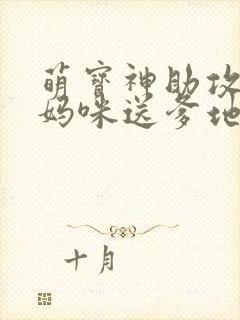 萌寶神助攻
媽咪送爹地
十月